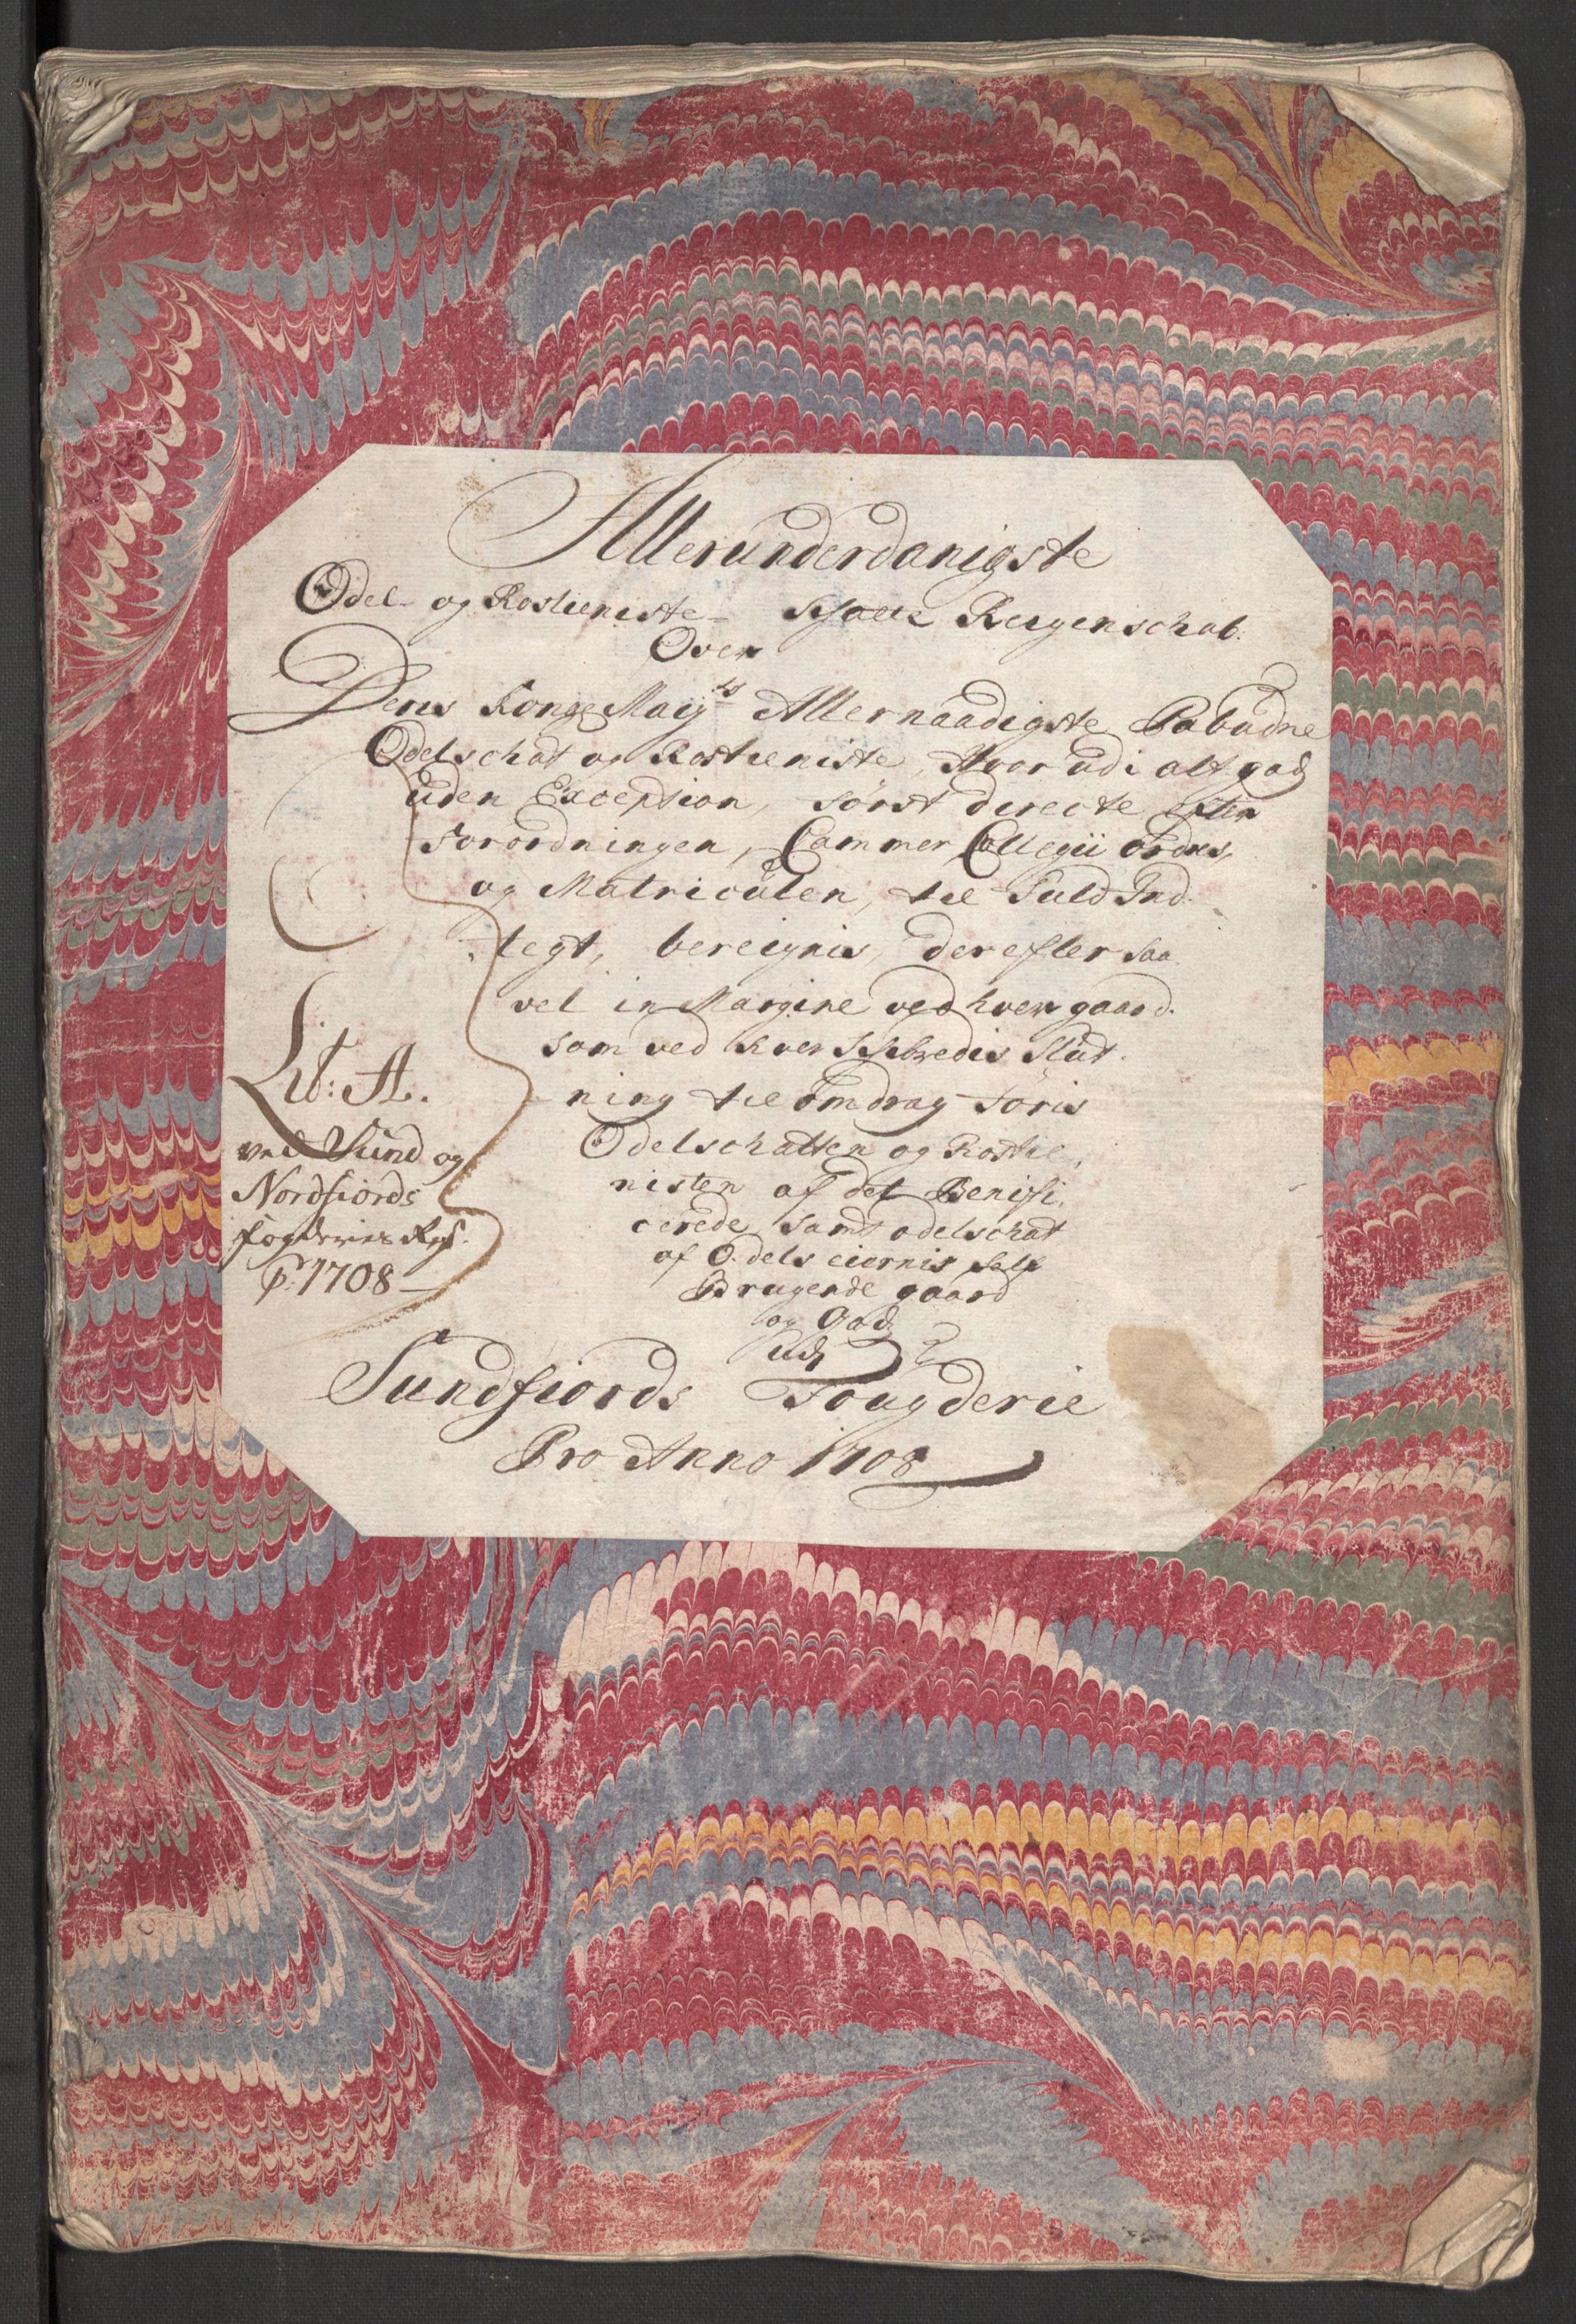 Allerunderdanigste
Odel- og Rostieniste- Schatte Reigenschab.
Over
Dens Kongl Mayts Allernaadigste Pabudne
Odelschat og Rostieniste, Hvor udi alt gods
uden Exception, først directe efter
forordningen, Cammer Collegii ordres,
og Matriculen, til Fuld Ind-
tegt, bereignis, derefter saa
vel in Margine ved hver gaard.
som ved hver Schibredis Slut-
ning til Omdrag føris
Odelschatten og Rostie-
nisten af det Benifi-
cerede, samt odelschat
af Odels eiernis self
Brugende gaard
og Gods
udj
Sundfiords Fougderie
Pro Anno 1708
Lit: A.
ved Sund og
Nordfiords
fogderies Regsk.
P: 1708